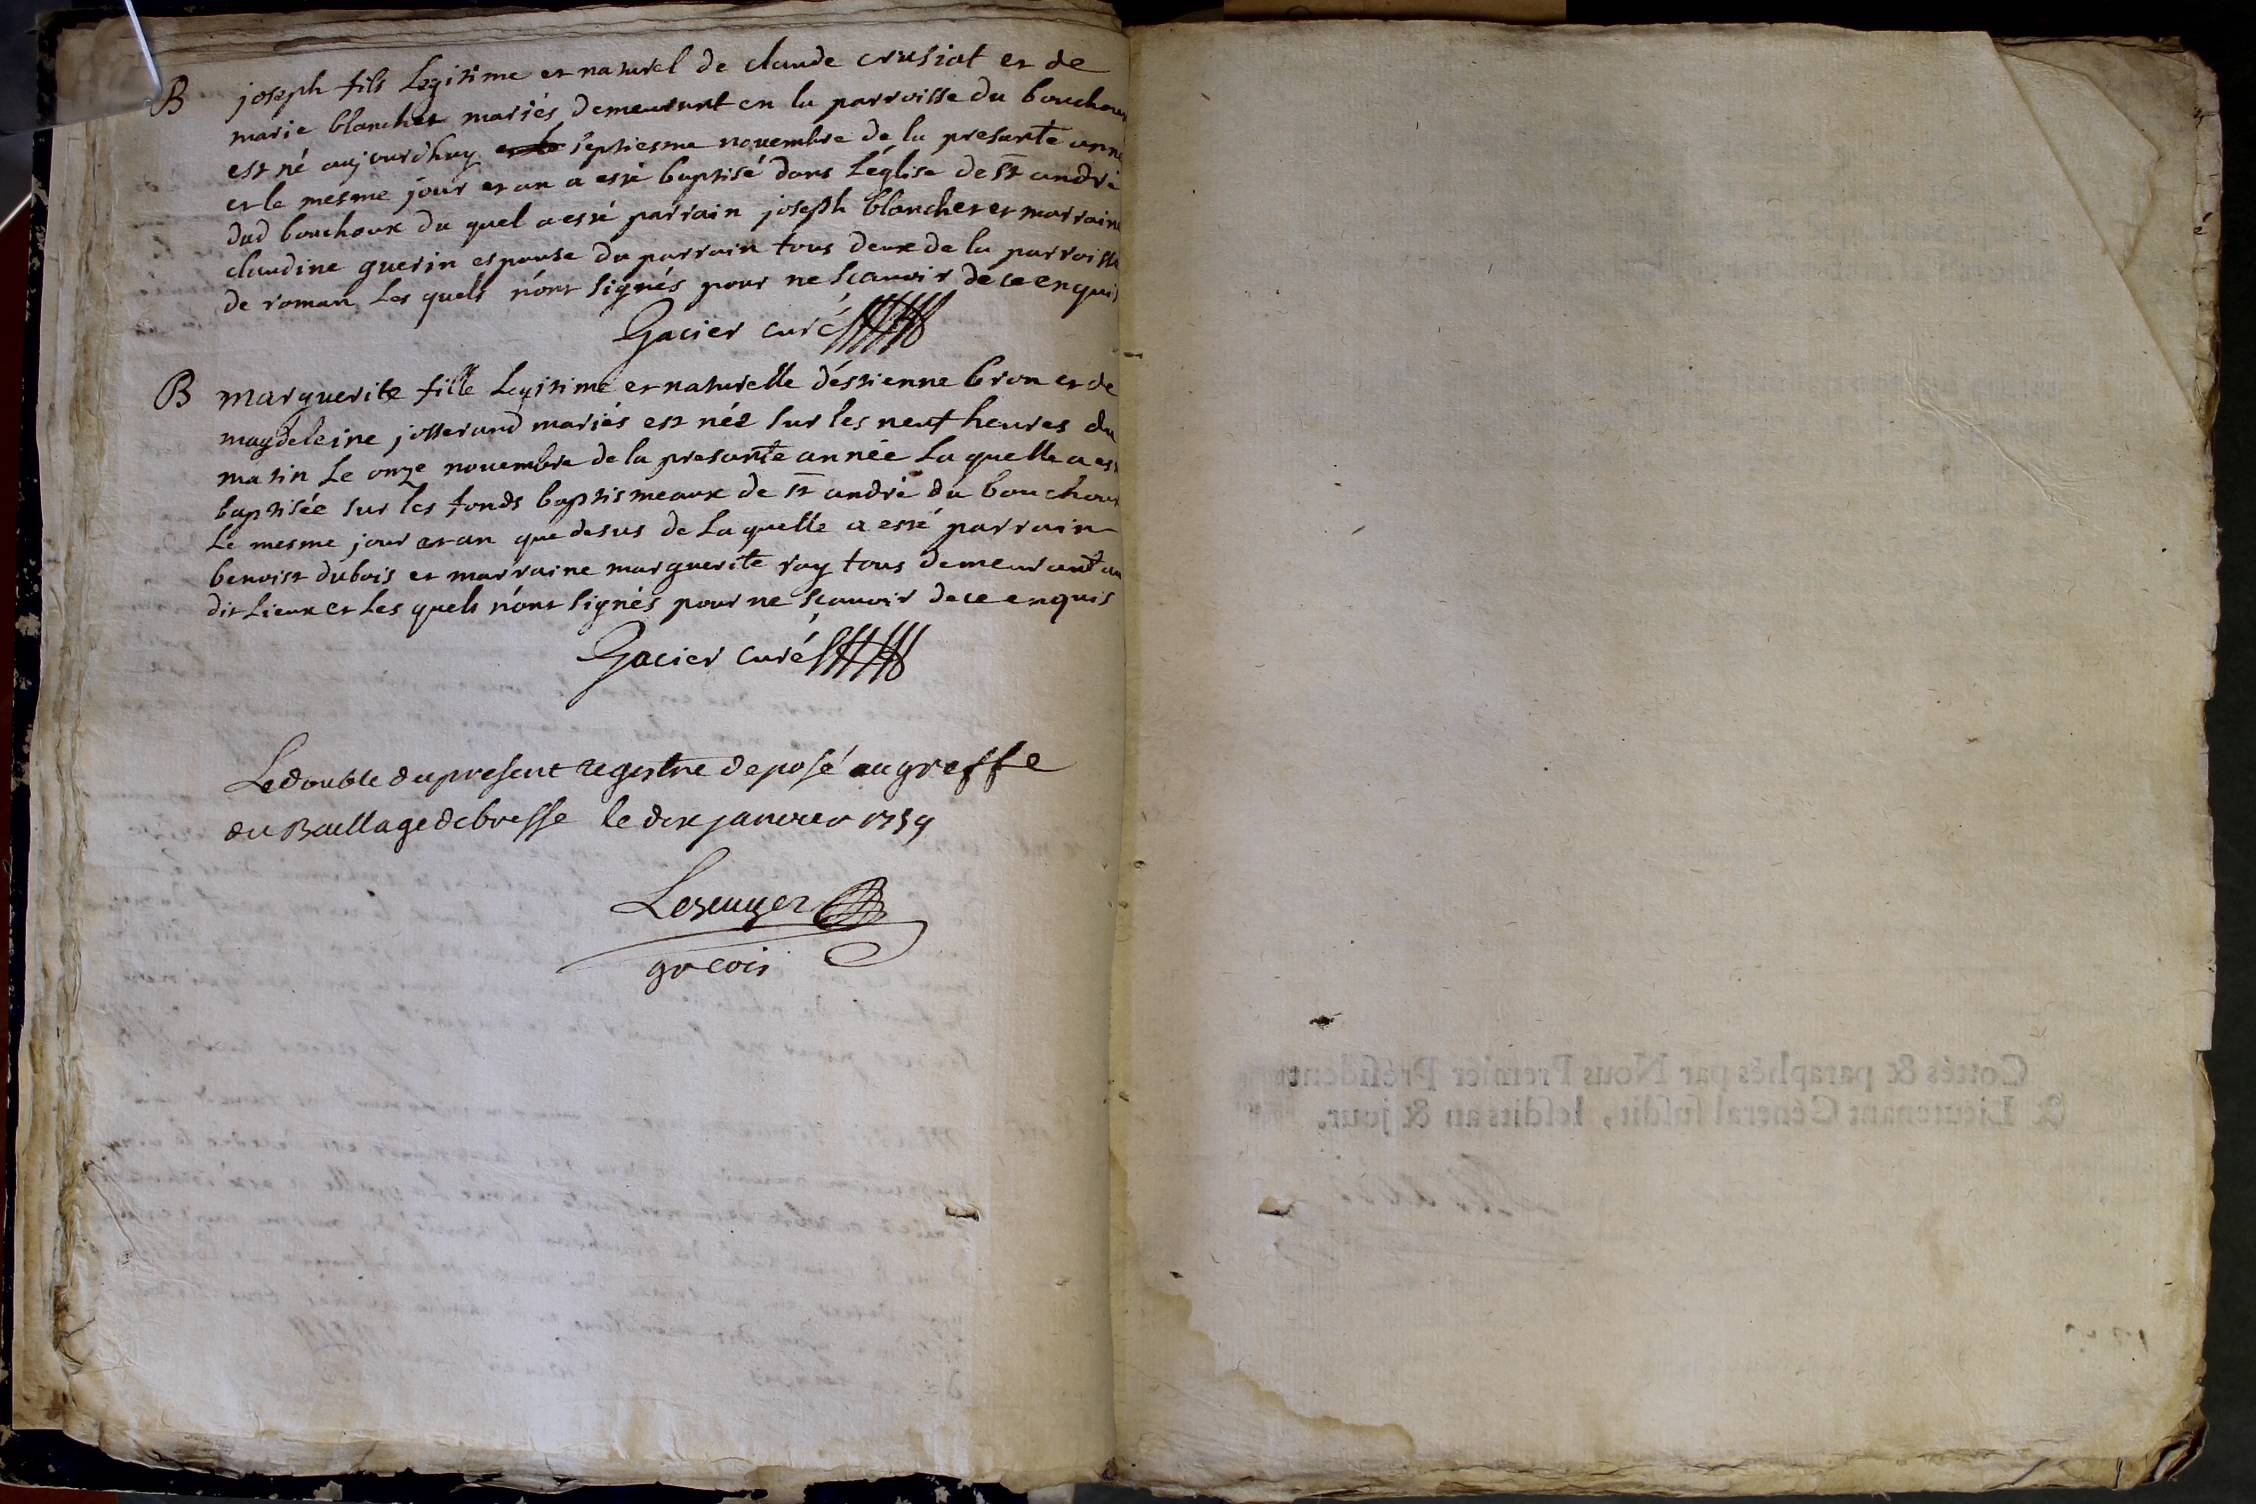 B joseph fils Legitime et naturel de claude crusiat et de
marie blanchet mariés demeurant en la parroisse du bouchoux
est né aujourdhuy septiesme novembre de la presante anné
et le mesme jour et an a esté baptisé dans L'église de st andré
dud bouchoux du quel a esté parrain joseph blanchet et marraine
claudine guerin espouse du parrain tous deux de la parroisse
de roman Les quels n'ont signés pour ne scavoir de ce enquis
Gacier curé
B marguerite fille Legitime et naturelle d'éstienne bron et de
magdeleine josserand mariés est née sur les neuf heures du
matin Le onze novembre de la presante année La quelle a est
baptisée sur les fonds baptismeaux de st andré du bouchoux
Le mesme jour et an que desus de La quelle a esté parrain
benoist dubois et marraine marguerite ray tous demeurant au
dit Lieux et Les quels n'ont signés pour ne scavoir de ce enquis
Gacier curé
Le double du present registre deposé au greffe
du Baillage de bresse le dix janvier 1759
Cottés & paraphés par Nous Premier Président
& Lieutenant Géneral susdit, lesdits an & jour.